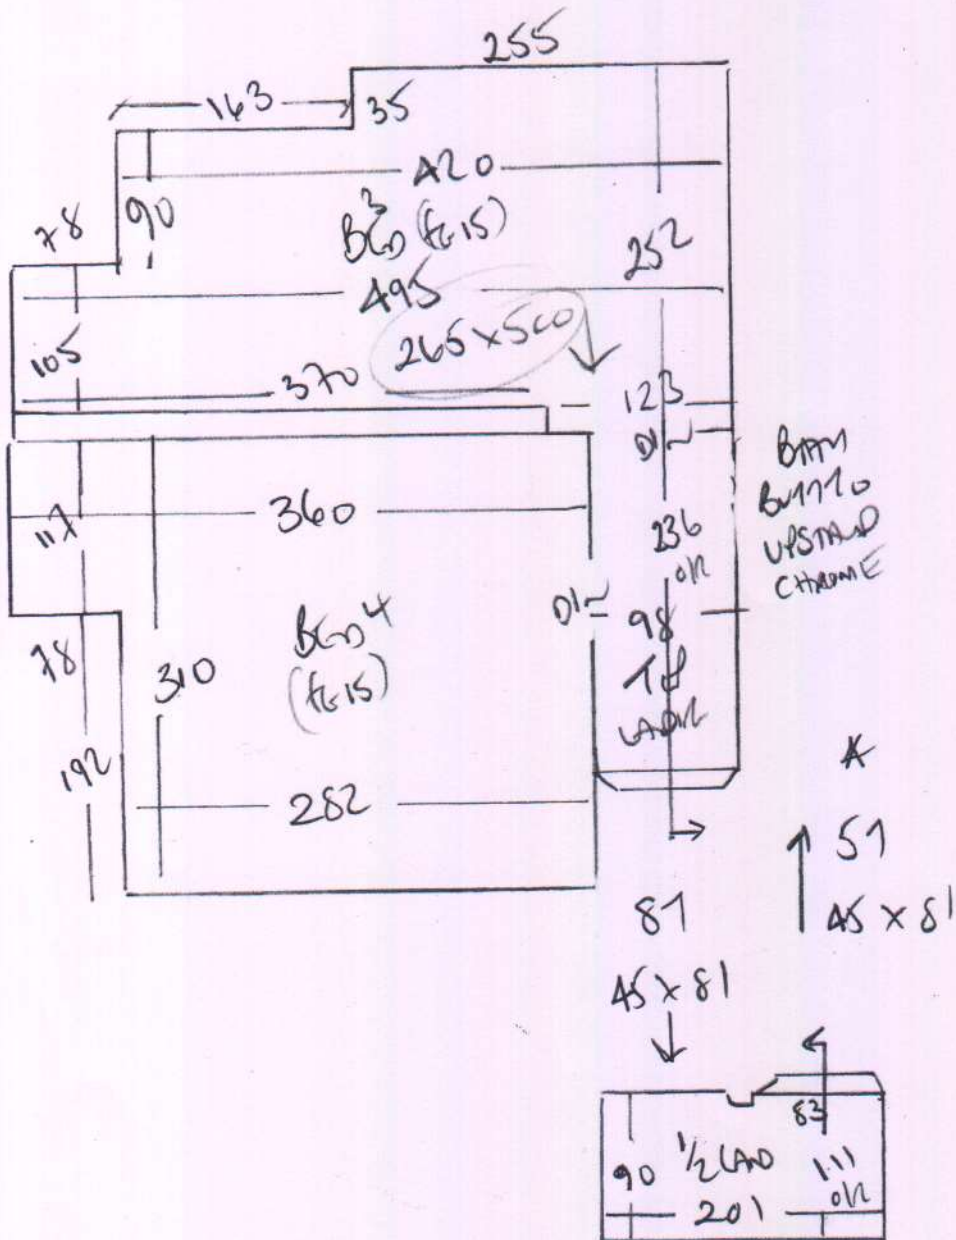 255
163
35
420
90
78
BED 3 (FG15)
252
495
265 x 500
105
370
123
D/
BATH
BUTTTO
UPSTAND
CHROME
117
360
236
O/R
D/
98
BED 4
(FG15)
78
310
192
282
51
45 x 81
45 x 81
83
90
1/2 LAND
1.11
O/R
201